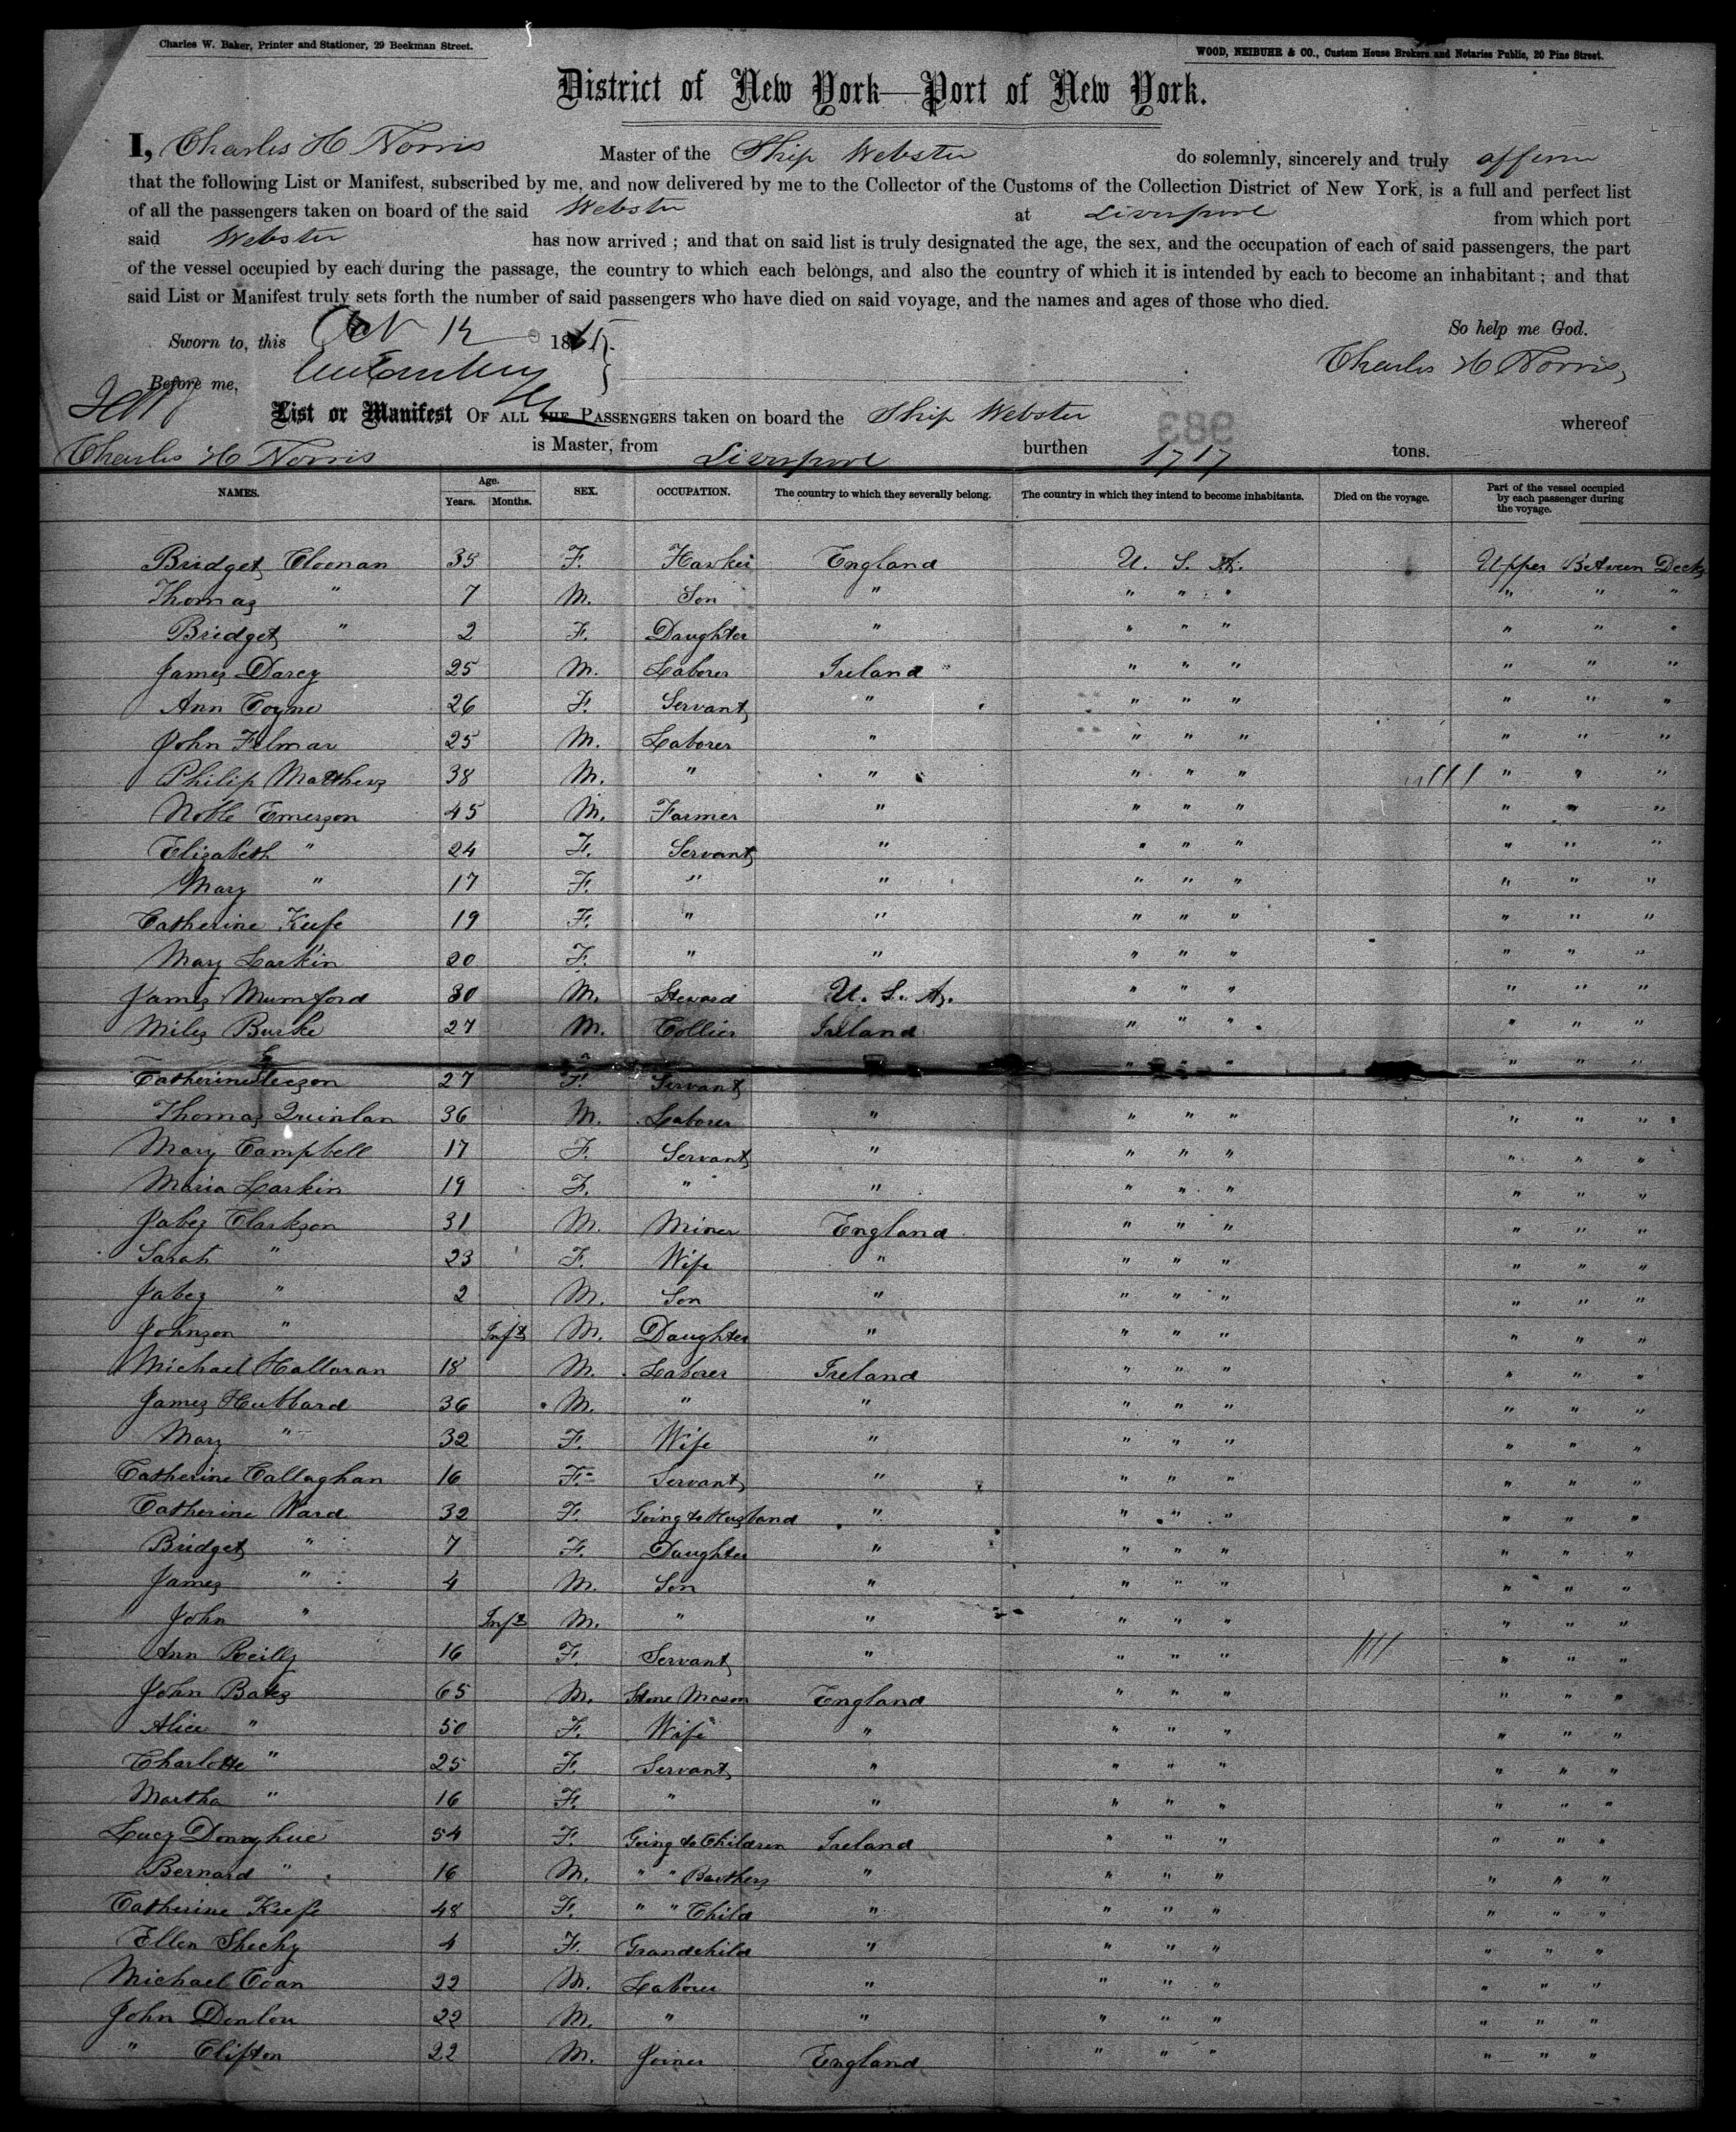 Charles W. Baker, Printer and Stationer, 29 Beekman Street.
WOOD, NEIBUHR & CO., Custom House Brokers and Notaries Public, 20 Pine Street.
District of New York—Port of New York.
I, Charles H Norris Master of the Ship Webster do solemnly, sincerely and truly affirm
that the following List or Manifest, subscribed by me, and now delivered by me to the Collector of the Customs of the Collection District of New York, is a full and perfect list
of all the passengers taken on board of the said Webster at Liverpool from which port
said Webster has now arrived ; and that on said list is truly designated the age, the sex, and the occupation of each of said passengers, the part
of the vessel occupied by each during the passage, the country to which each belongs, and also the country of which it is intended by each to become an inhabitant ; and that
said List or Manifest truly sets forth the number of said passengers who have died on said voyage, and the names and ages of those who died.
So help me God.
Sworn to, this Oct 12 1865.
Charles H Norris,
Before me,
List or Manifest OF ALL THE PASSENGERS taken on board the Ship Webster whereof
983
Charles H Norris is Master, from Liverpool burthen 1717 tons.
NAMES. Age. Years. Months. SEX. OCCUPATION. The country to which they severally belong. The country in which they intend to become inhabitants. Died on the voyage. Part of the vessel occupied by each passenger during the voyage.
Bridget Cloonan 35 F. Hawker England U. S. A. Upper Between Decks
Thomas " 7 M. Son " " " " " " "
Bridget " 2 F. Daughter " " " " " " "
James Darcy 25 M. Laborer Ireland " " " " " "
Ann Coyne 26 F. Servant " " " " " " "
John Filmar 25 M. Laborer " " " " " " "
Philip Matthews 38 M. " " " " " " " "
Noble Emerson 45 M. Farmer " " " " " " "
Elizabeth " 24 F. Servant " " " " " " "
Mary " 17 F. " " " " " " " "
Catherine Keefe 19 F. " " " " " " " "
Mary Larkin 20 F. " " " " " " " "
James Mumford 30 M. Steward U. S. A. " " " " " "
Miles Burke 27 M. Collier Ireland " " " " " "
Catherine Gleeson 27 F. Servant " " " " " "
Thomas Quinlan 36 M. Laborer " " " " " " "
Mary Campbell 17 F. Servant " " " " " " "
Maria Larkin 19 F. " " " " " " " "
Jabez Clarkson 31 M. Miner England " " " " " "
Sarah " 23 F. Wife " " " " " " "
Jabez " 2 M. Son " " " " " " "
Johnson " Inft M. Daughter " " " " " " "
Michael Halloran 18 M. Laborer Ireland " " " " " "
James Hubbard 36 M. " " " " " " " "
Mary " 32 F. Wife " " " " " " "
Catherine Callaghan 16 F. Servant " " " " " " "
Catherine Ward 32 F. Going to Husband " " " " " " "
Bridget " 7 F. Daughter " " " " " " "
James " 4 M. Son " " " " " " "
John " Inft M. " " " " " " " "
Ann Reilly 16 F. Servant " " " " " " "
John Bates 65 M. Stone Mason England " " " " " "
Alice " 50 F. Wife " " " " " " "
Charlotte " 25 F. Servant " " " " " " "
Martha " 16 F. " " " " " " " "
Lucy Donnghue 54 F. Going to Children Ireland " " " " " "
Bernard " 16 M. " " Brothers " " " " " " "
Catherine Keefe 48 F. " " Child " " " " " " "
Ellen Sheehy 4 F. Grandchild " " " " " " "
Michael Coan 22 M. Laborer " " " " " " "
John Donlon 22 M. " " " " " " " "
" Clifton 22 M. Joiner England " " " " " "